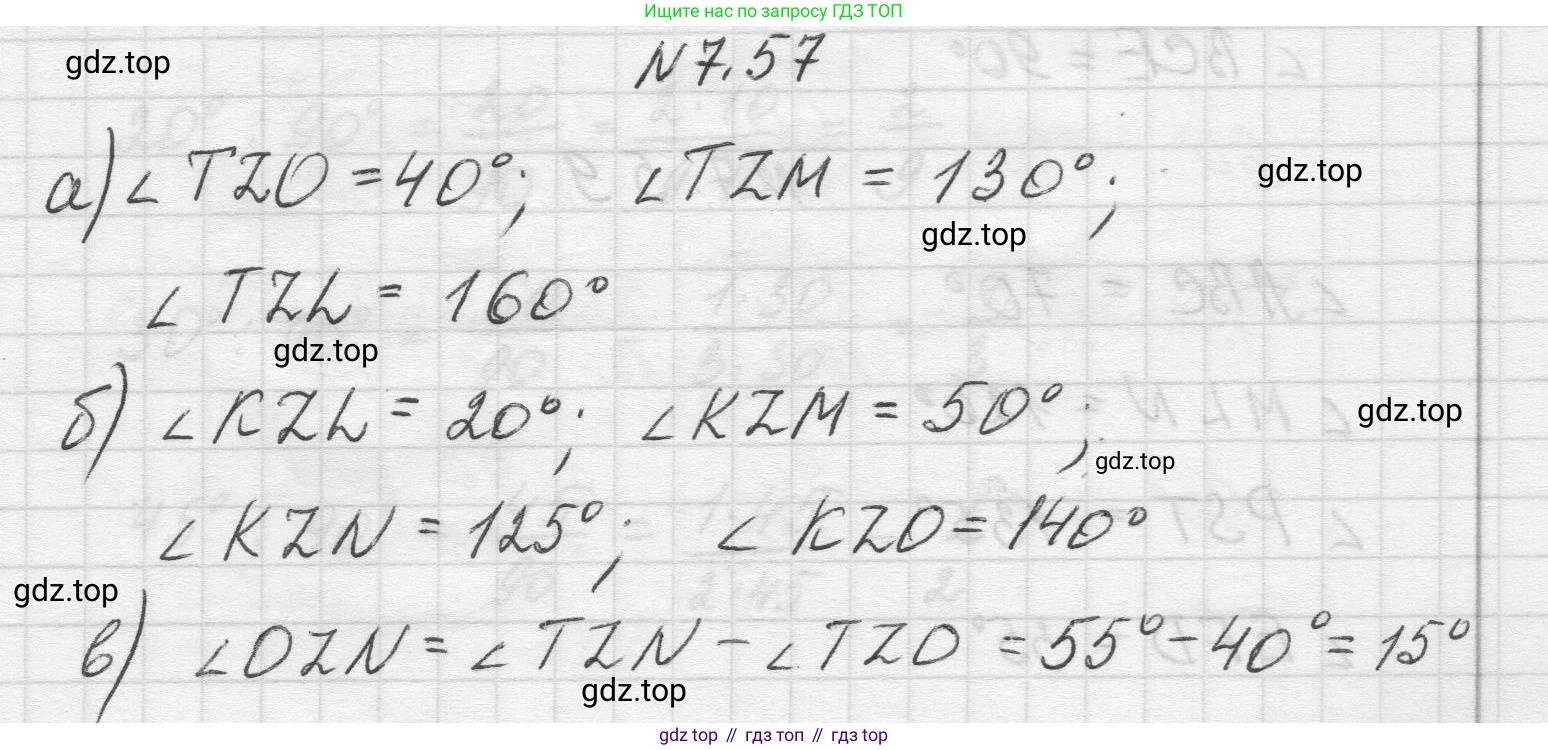 Ищите нас по запросу ГДЗ ТОП
gdz.top
N 7.57
а) ∠TZO = 40°; ∠TZM = 130°;
gdz.top
gdz.top
∠TZL = 160°
gdz.top
б) ∠KZL = 20°; ∠KZM = 50°;
gdz.top
gdz.top
∠KZN = 125°; ∠KZO = 140°
gdz.top
в) ∠OZN = ∠TZN - ∠TZO = 55° - 40° = 15°
gdz.top
gdz top // гдз топ // гдз top